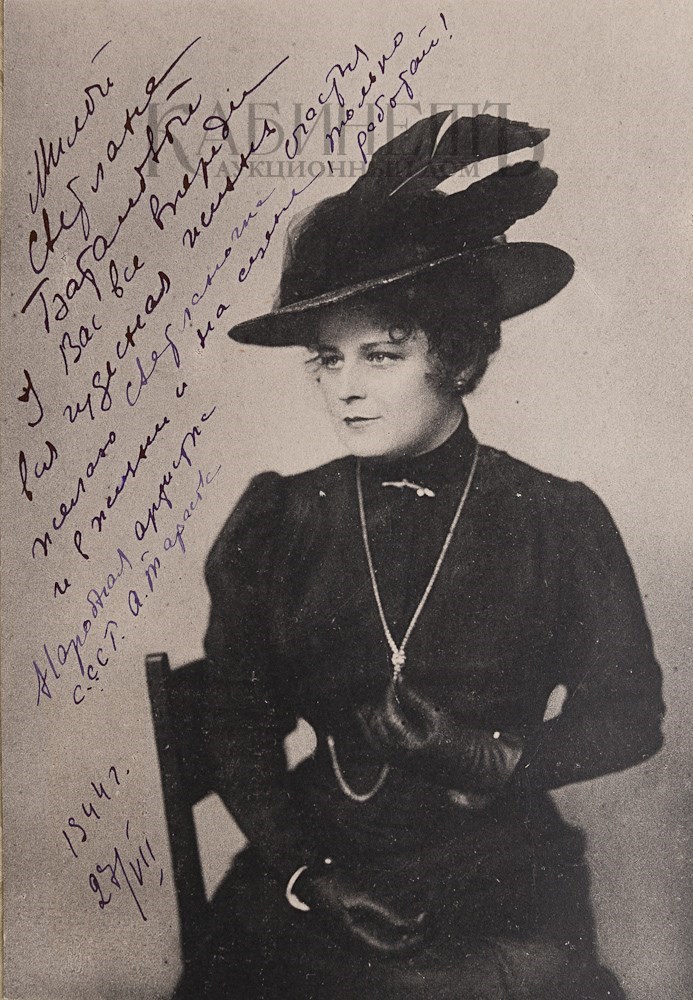 КАБИНЕТЪ
АУКЦИОННЫЙ ДОМ
Милой
Светлане
Баталовой
У Вас все впереди
вся чудесная жизнь
желаю Светланочке счастья
и в жизни и на сцене, только
работай!
Народная артистка
СССР. А. Тарасова
1944 г.
27/VII